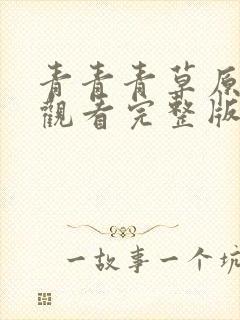 青青青草原
觀看完整版
一故事一个坑